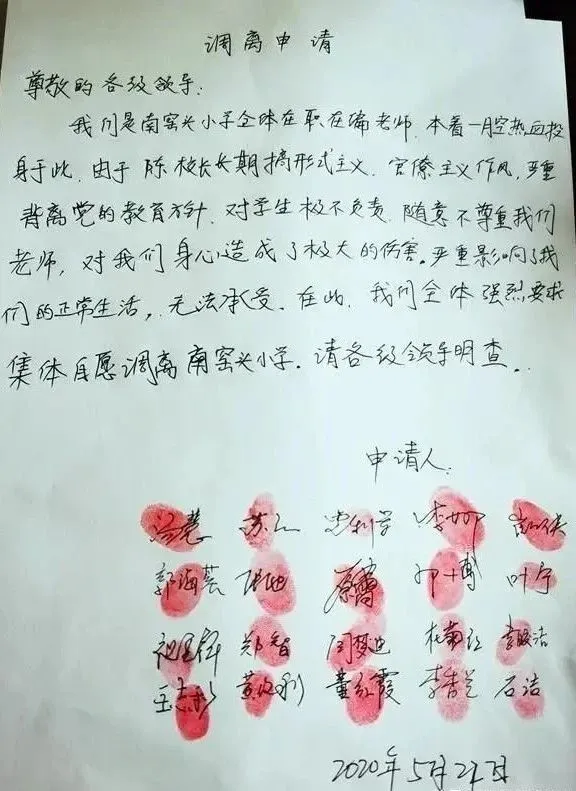 调离申请
尊敬的各级领导:
我们是南窑头小学全体在职在编老师.本着一腔热血投
身于此.由于陈校长长期搞形式主义.官僚主义作风,严重
背离党的教育方针.对学生极不负责.随意不尊重我们
老师,对我们身心造成了极大的伤害。严重影响了我
们的正常生活,.无法承受.在此.我们全体强烈要求
集体自愿调离南窑头小学.请各级领导明查..
申请人:
郭海芸 叶宁
郑智 闫梦迪 杜菊红
董红霞 李杏兰 石洁
2020年5月2 日